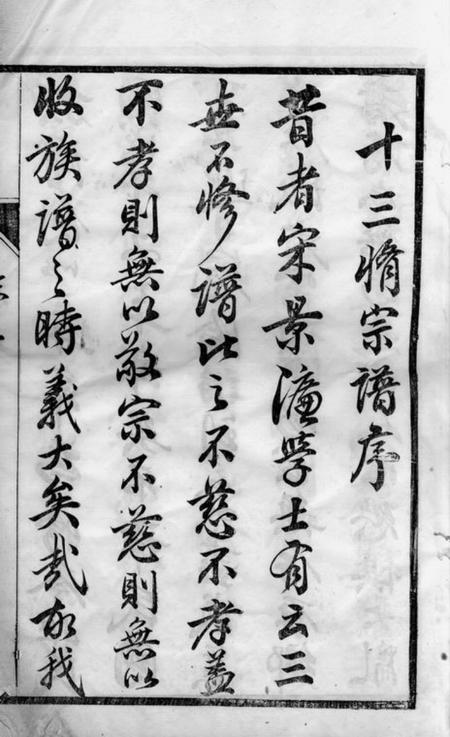 十三脩宗譜序
昔者宋景濂學士有云三
世不修譜比之不慈不孝蓋
不孝則無以敬宗不慈則無以
收族譜之時義大矣哉故我